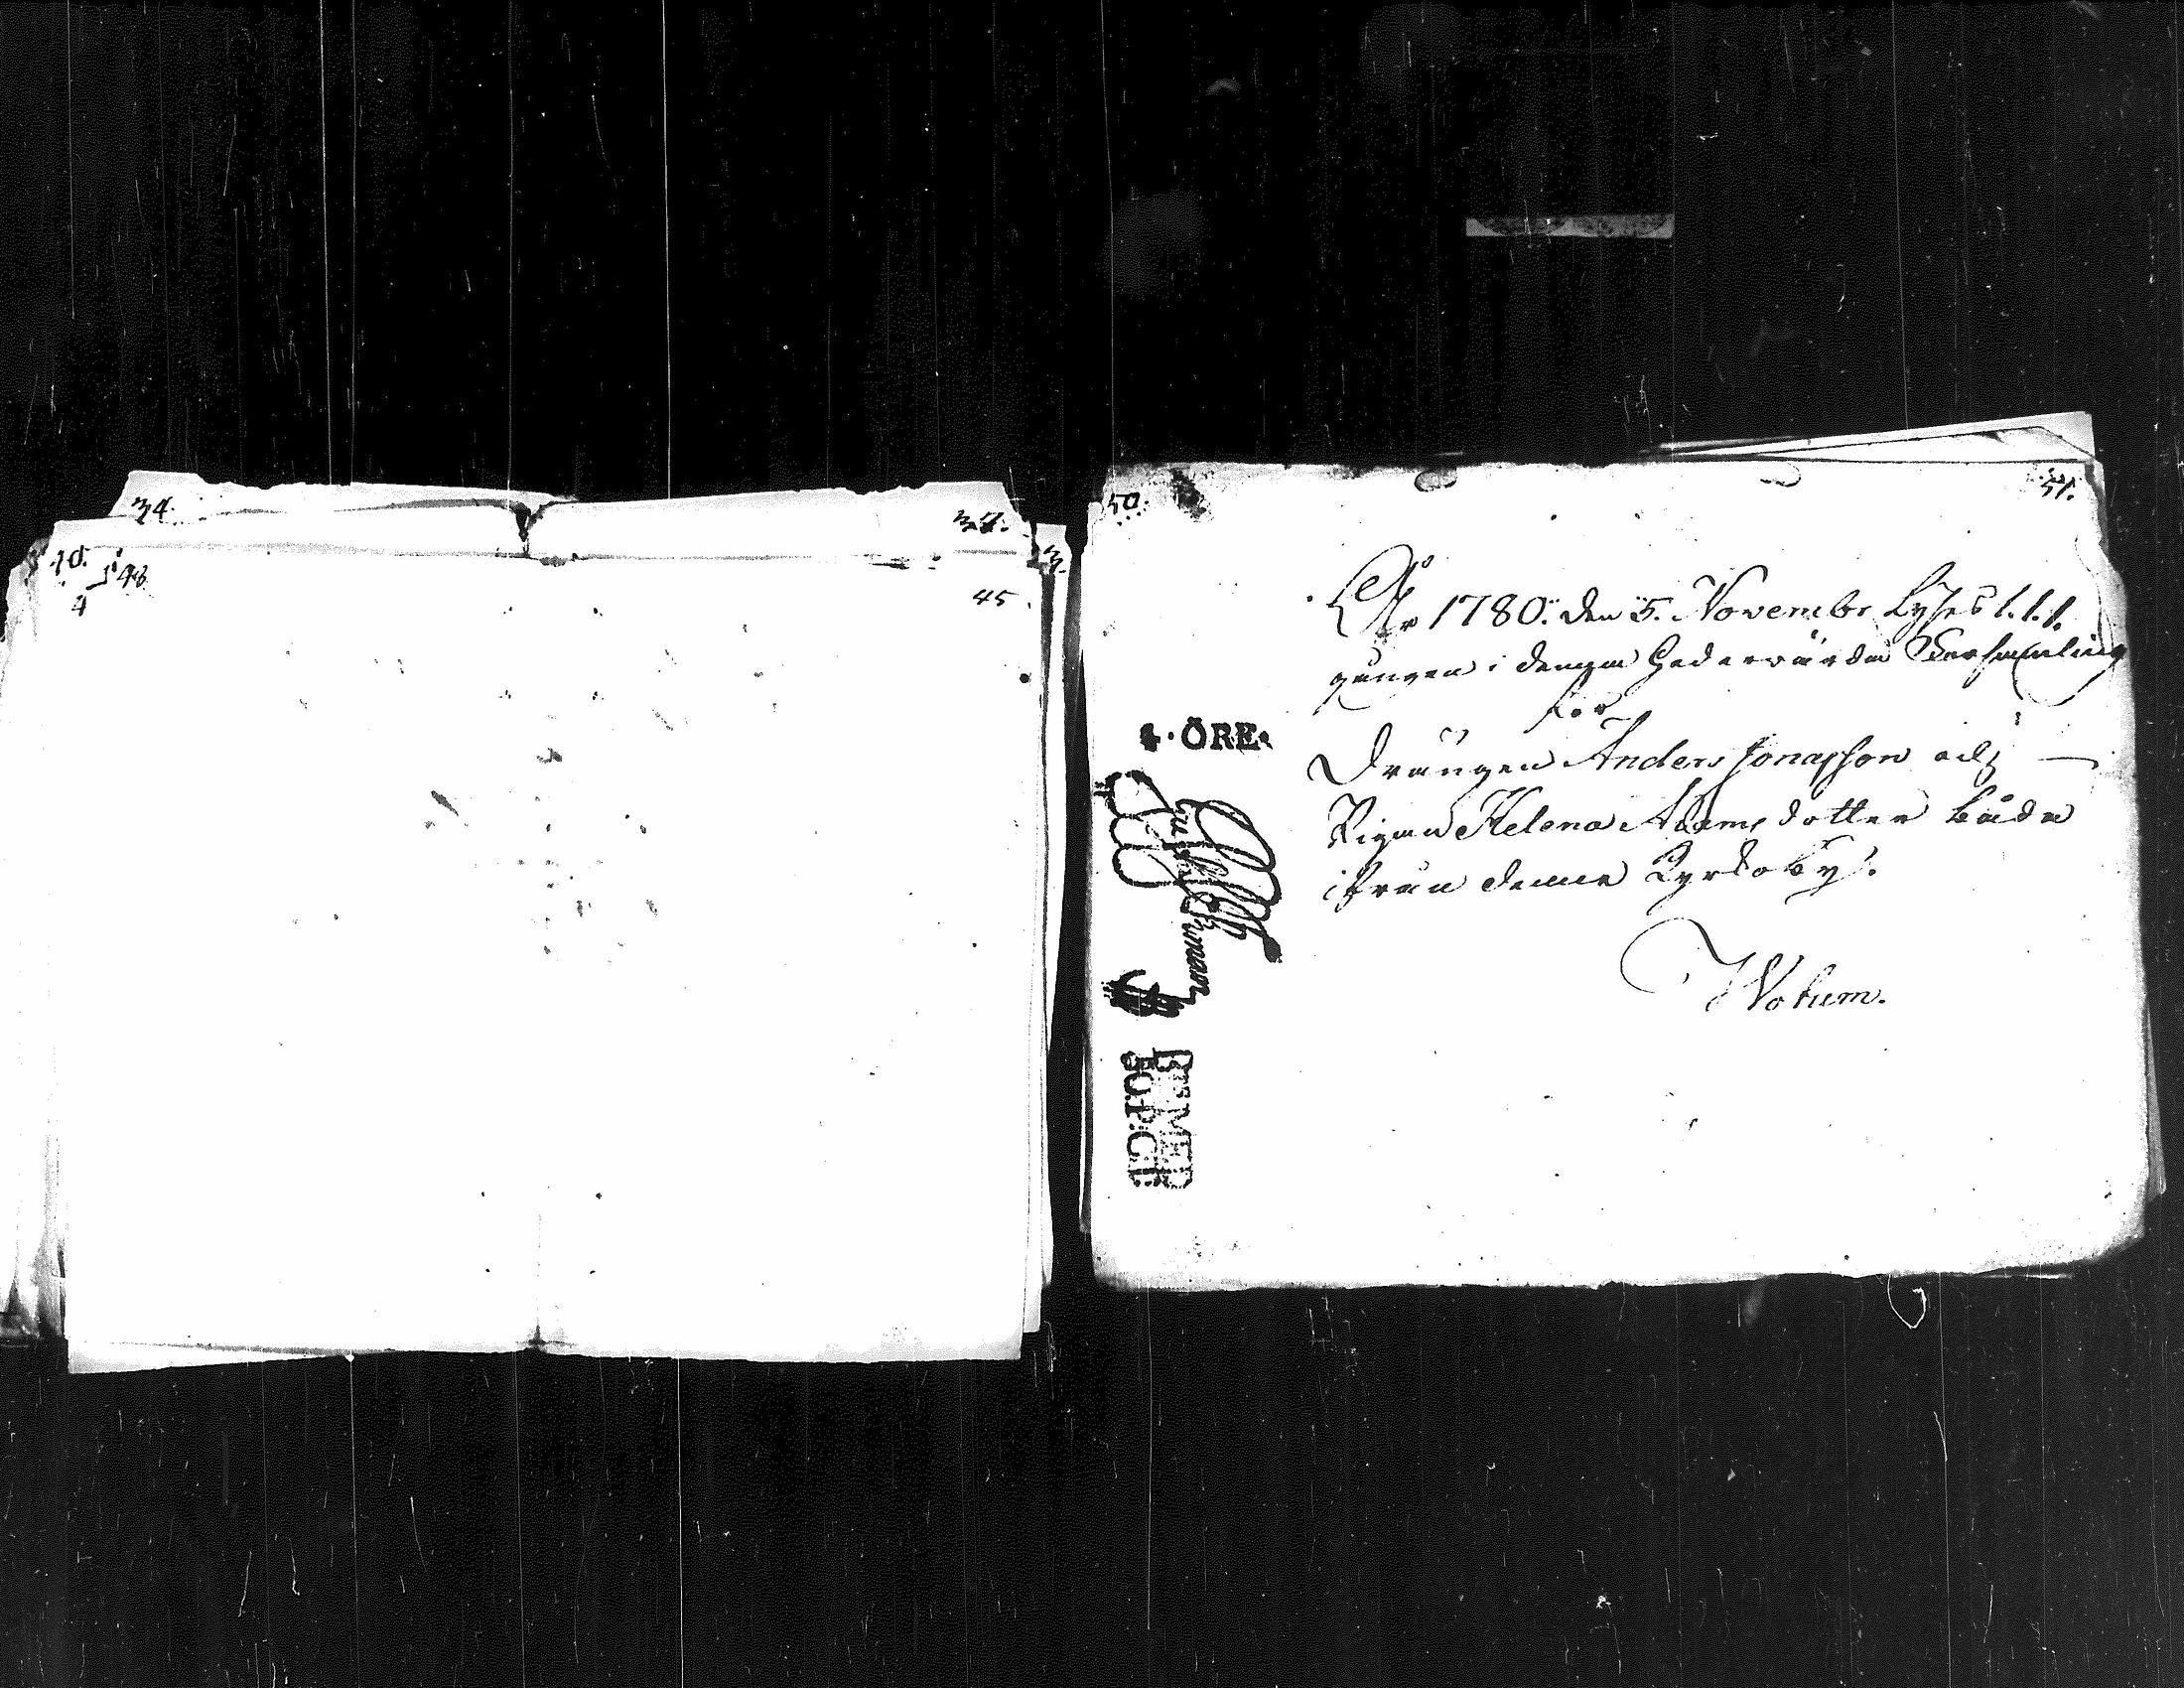 34.
37.
40.
48
4
45
3.
50.
51.
År 1780. den 5. Novembr Lyses 1. 1. 1.
gången i denna hedervärda Församling
för
Drängen Anders Jonasson och
Pigan Helena Adamsdotter båda
ifrån denna Kyrkoby.
Wotum.
4. ÖRE.